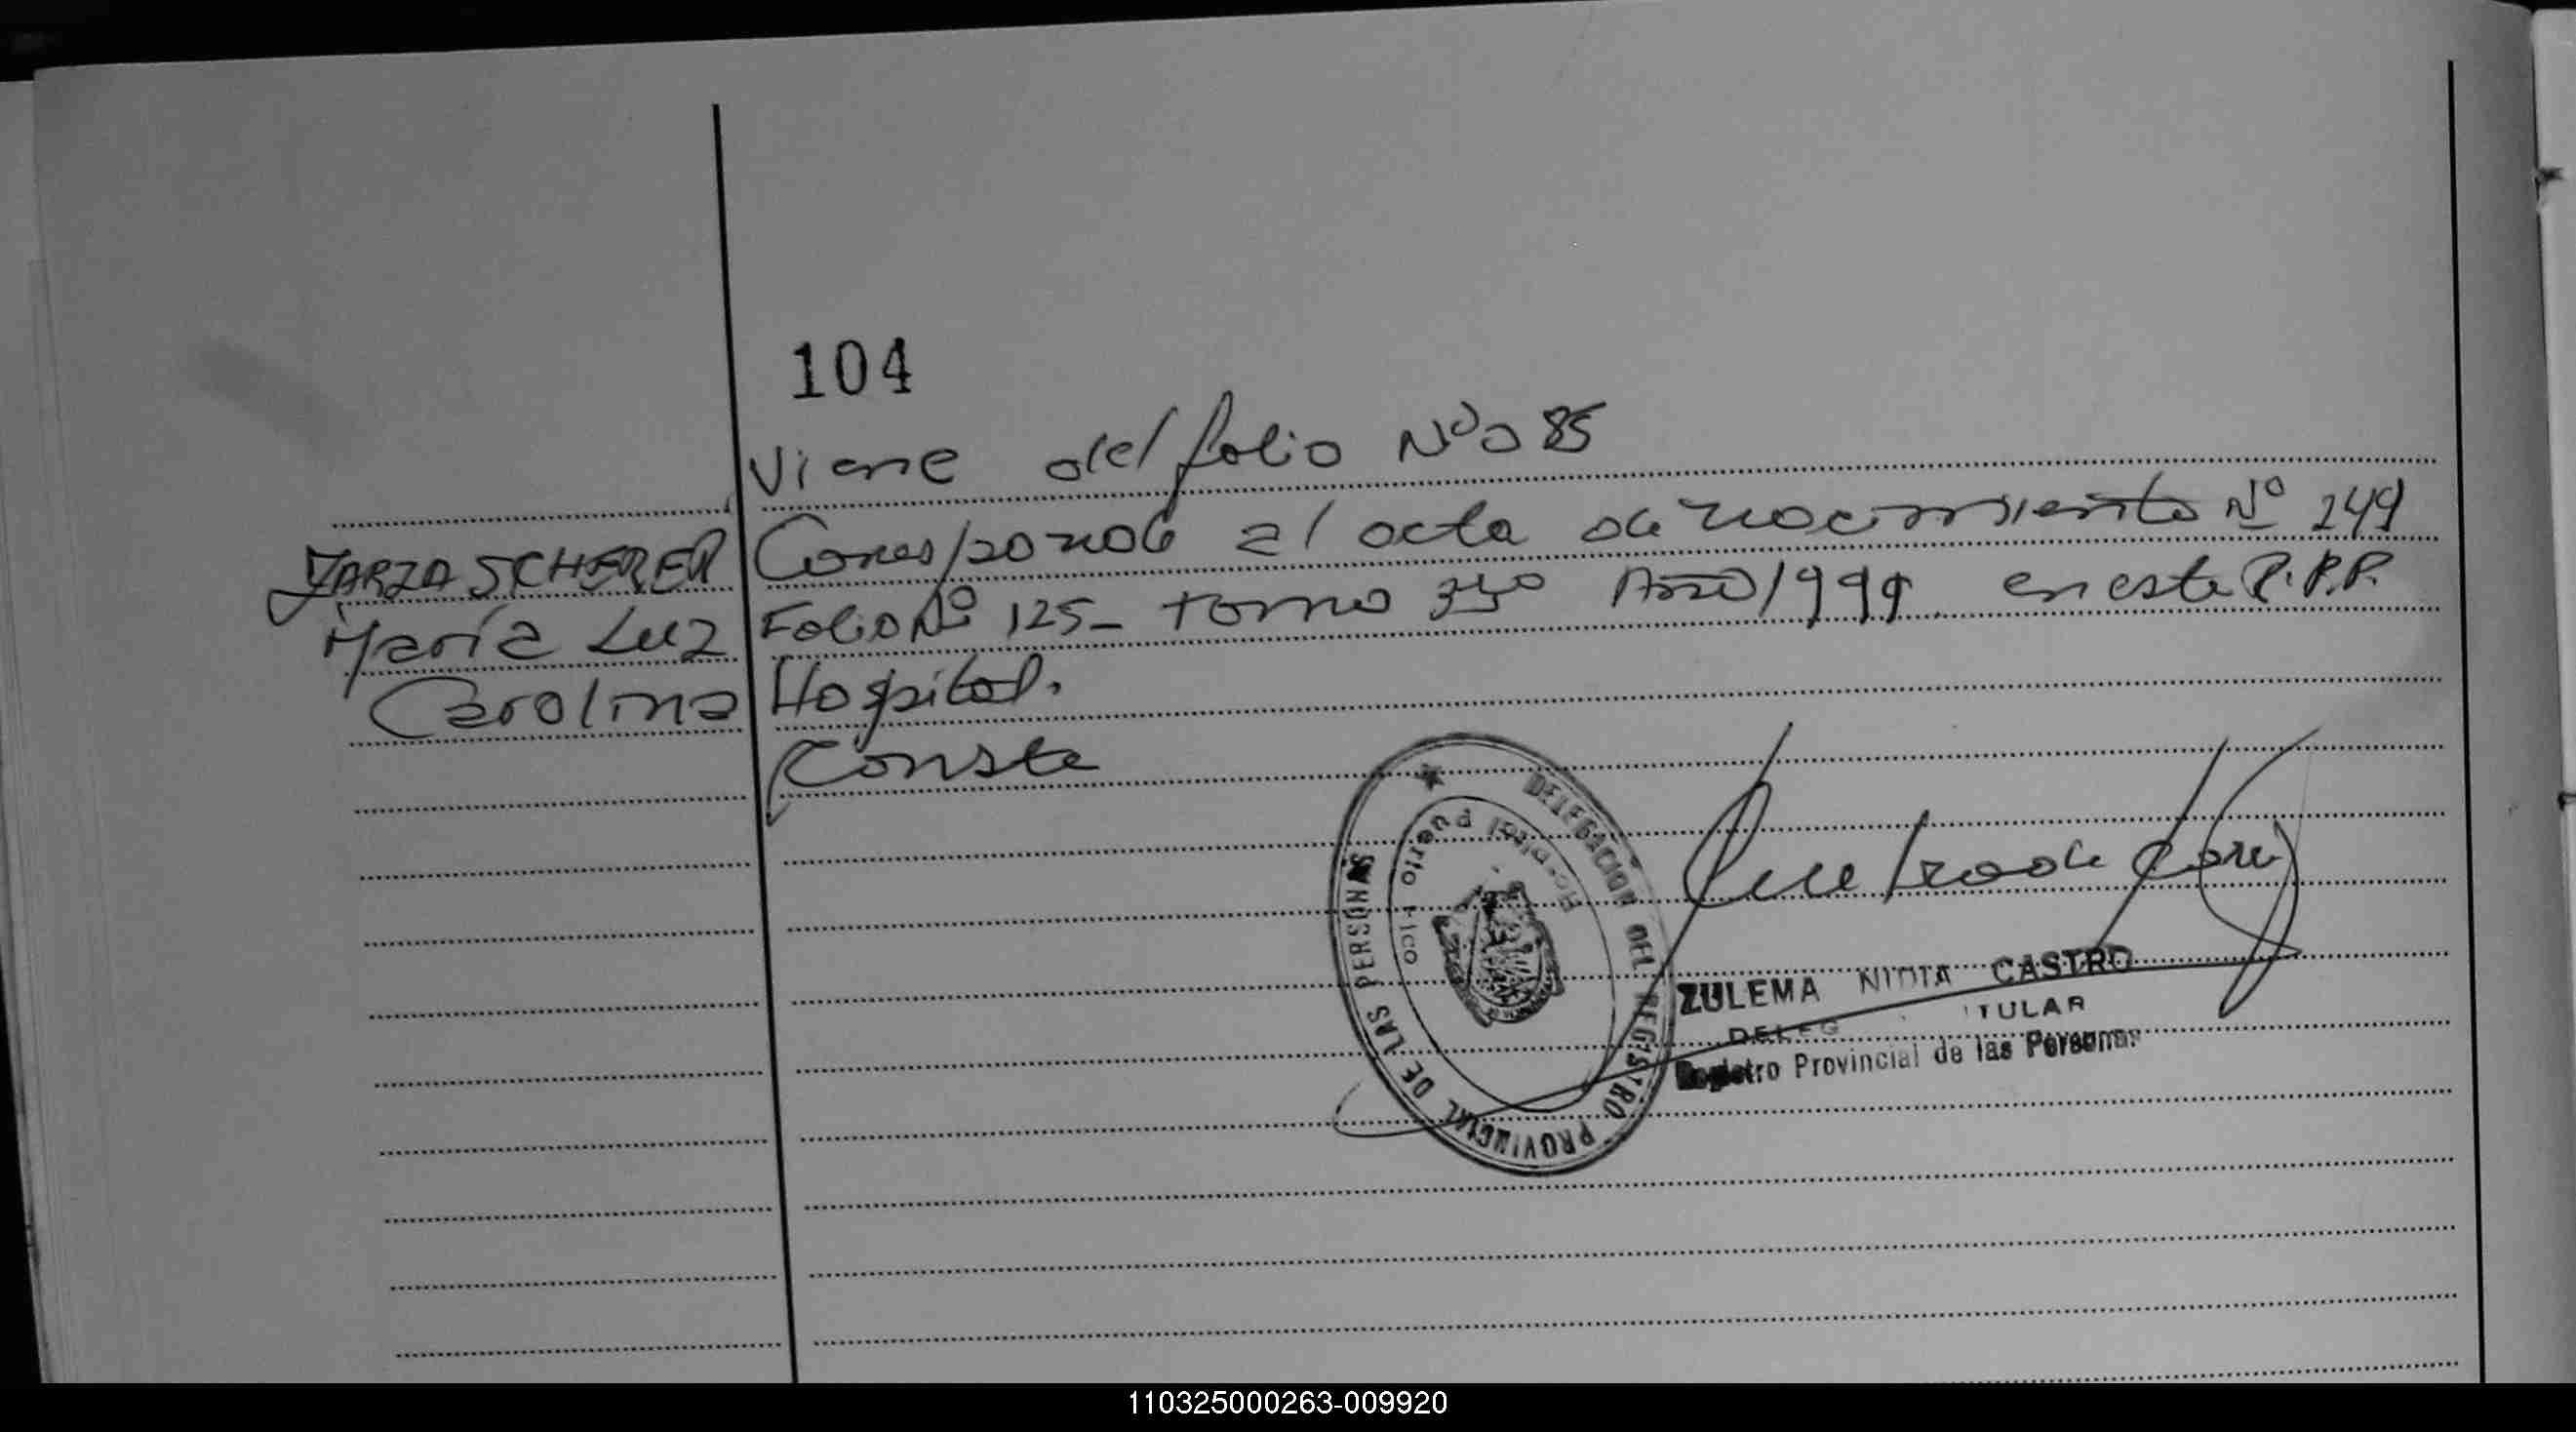 104
Viene del folio Nº 085
YARZA SCHERER
María Luz
Carolina
Corresponde al acta de nacimiento Nº 249
Folio Nº 125_ tomo 33º Año 1999 en este R.P.P.
Hospital.
Conste
DELEGACION DEL REGISTRO PROVINCIAL DE LAS PERSONAS
Hospital Puerto Rico
ZULEMA NIDIA CASTRO
DELEG TULAR
Registro Provincial de las Personas
110325000263-009920